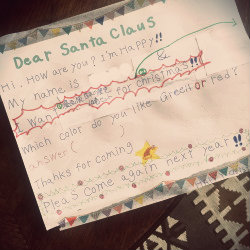 Dear Santa Claus
Hi. How are you? I'm Happy!!
My name is &
I Wan for christmas!!
Which color do you like Green or red?
answer ( )
Thanks for coming
Pleas come again next year!!